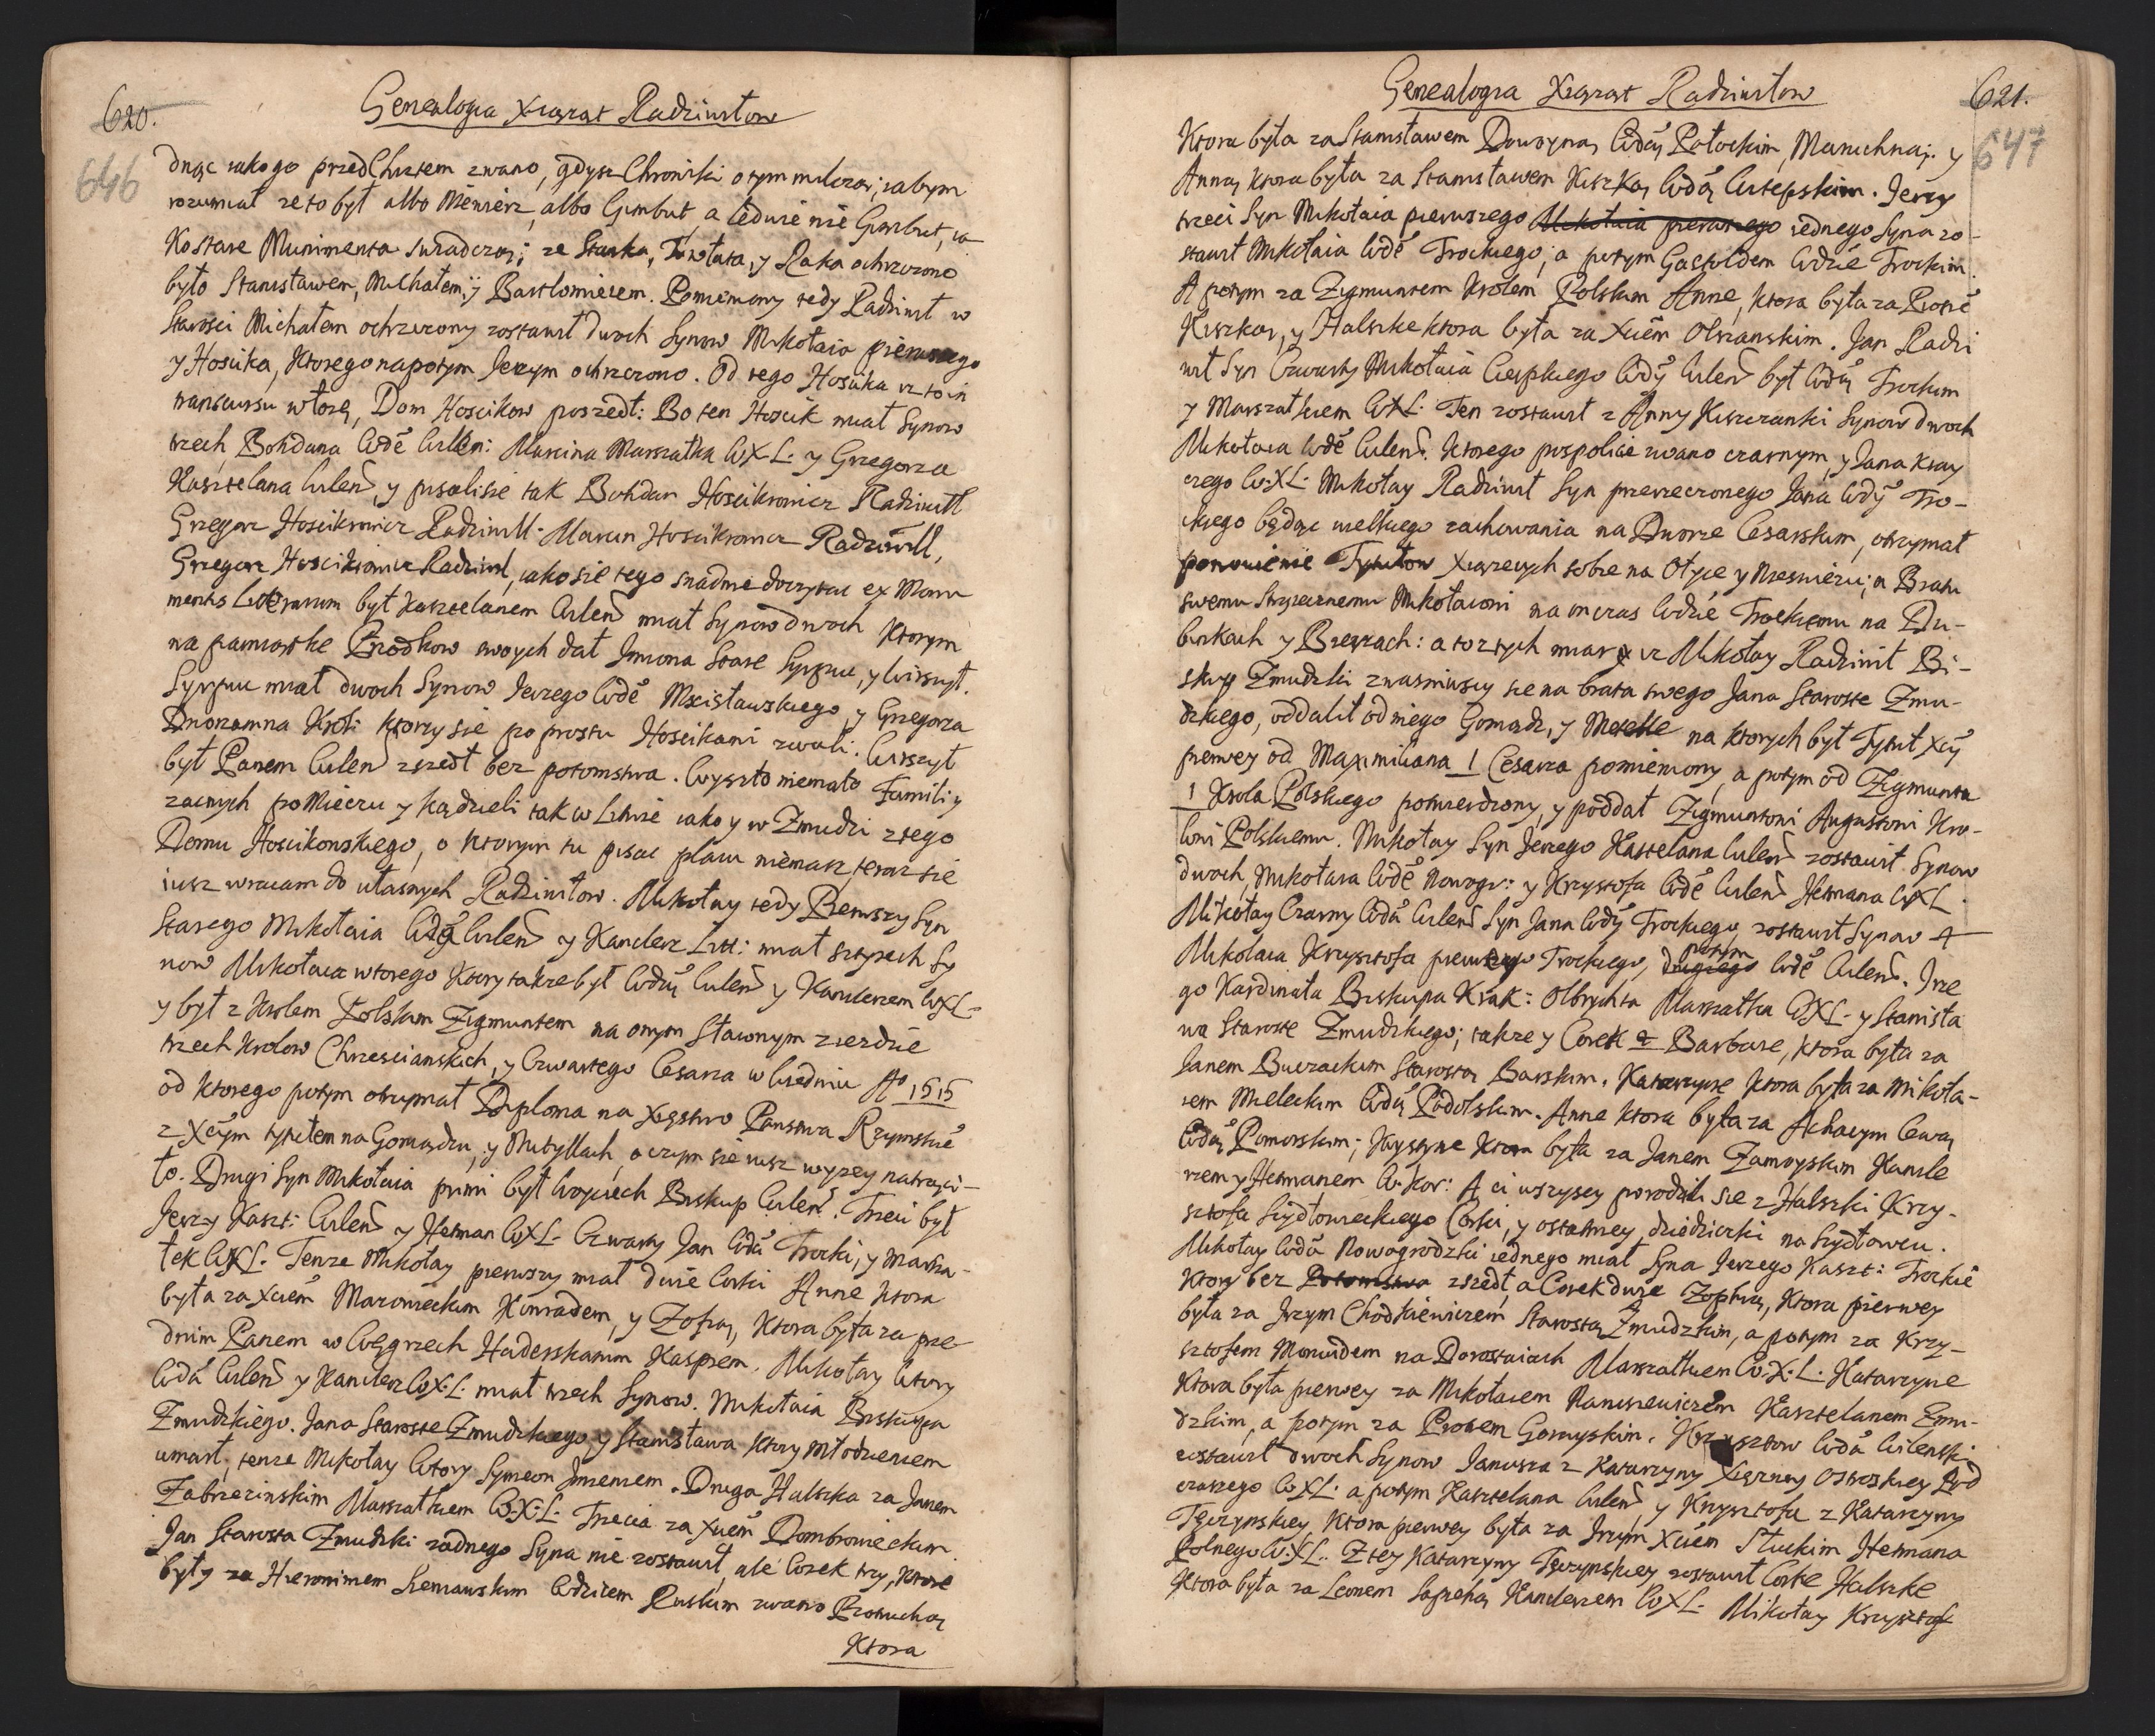 620.
Genealogia Xiąząt Radziwiłow
646
dnąc iako go przed Chrztem zwano, gdysz Chroniki o tym milczą; iabym
rozumiał ze to był albo Mienierz albo Gimbut, a iedwie nie Gimbut, ia-
Ko stare Munimenta swiadczą; ze Stanka, Twołata, y Raka ochrzczono
było Stanisławem, Michałem, y Bartłomieiem. Pomieniony tedy Radziwił w
Starosci Michałem ochrzczony zostawił dwoch Synow Mikołaia pierwszego
y Hoscika, Ktorego napotym Jerzym ochrzczono. Od tego Hoscika iz to in
transcursu wtozę, Dom Hoscikow poszedł: Bo ten Hoscik miał Synow
trzech Bohdana Wdę Wilen: Marcina Marszałka WXL. y Grzegorza
Kasztelana Wilen, y pisali sie tak Bohdan Hoscikowicz Radziwill
Grzegorz Hoscikowicz Radziwill. Marcin Hoscikowicz Radziwill,
Grzegorz Hoscikiowicz Radziwił, iako sie tego snadnie doczytac ex Monu
mentis Litterarum był Kasztelanem Wilen miał Synow dwoch Ktorym
na pamiątke Przodkow swoych dał Jmiona Stare Syrpuc, y Wirszyt.
Syrpuc miał dwoch Synow Jerzego Wdę Mscisławskiego, y Grzegorza
Dworzanina Krol: Ktorzy sie po prostu Hoscikami zwali. Wirszyt
był Panem Wilen zszedł bez potomstwa. Wyszło niemało Familiy
zacnych po Mieczu y Kądzieli tak w Litwie iako y w Zmudzi z tego
Domu Hoscikowskiego, o Ktorym tu pisac placu niemasz, teraz sie
iusz wracam do własnych Radziwiłow. Mikołay tedy Pierwszy Syn
Starego Mikołaia Wdy Wilen y Kanclerz Litt: miał czterech Sy
now Mikołaia wtorego Ktory takze był Wdą Wilen y Kanclerzem WXL.
y był z Krolem Polskim Zigmuntem na onym Sławnym ziezdzie
trzech Krolow Chrzescianskich, y Czwartego Cesarza w Wiedniu Aº 1515
od Ktorego potym otrzymał Diploma na Xięstwo Panstwa Rzymskiº
z Xcym tytułem na Goniądzu, y Mutyllach, o czym sie iusz wyzey natrąci-
ło. Drugi Syn Mikołaia primi był Woyciech Biskup Wilen. Trzeci był
Jerzy Kaszt: Wilen y Hetman WXL. Czwarty Jan Wda Trocki, y Marsza-
łek WXL. Tenze Mikołay pierwszy miał dwie Corki Annę Ktora
była za Xciem Mazowieckim Konradem, y Zofią, Ktora była za prze
dnim Panem w Węgrzech Haderskanim Kasprem. Mikołay Wtory
Wda Wilen y Kanclerz WXL. miał trzech Synow. Mikołaia Biskupa
Zmudzkiego. Jana Staroste Zmudzkiego, y Stanisława Ktory młodzieniem
umarł, tenze Mikołay Wtory Symeon Jmieniem. Druga Halszka za Janem
Zabrzezinskim Marszałkiem W.X.L. Trzecia za Xciem Dombrowieckim
Jan Starosta Zmudzki zadnego Syna nie zostawił, ale Corek trzy, Ktore
były za Hieronimem Sieniawskim Wdzicem Ruskim zwano Piotruchą
Ktora
Genealogia Xiąząt Radziwiłow
621.
647
Ktora była za Stanisławem Dowoyną Wdą Połockim, Maruchną; y
Anną Ktora była za Stanisławem Kiszką Wdą Witepskim. Jerzy
trzeci Syn Mikołaia pierwszego Mikołaia pierwszego iednego Syna zo-
stawił Mikołaia Wdę Trockiego; a potym Gasztoldem Wdzie Trockim.
A potym za Zygmuntem Krolem Polskim Annę, Ktora była za Piotrē
Kiszką, y Halszke ktora była za Xciem Olszanskim. Jan Radzi
wił Syn Czwarty Mikołaia Cieszkiego Wdy Wilen był Wdą Trockim
y Marszałkiem WXL. Ten zostawił z Anny Kiszczanki Synow dwoch
Mikołaia Wdę Wilen. Ktorego pospolicie zwano czarnym, y Jana Kray
czego W.XL. Mikołay Radziwił Syn przerzeczonego Jana Wdy Tro-
ckiego będąc wielkiego zachowania na Dworze Cesarskim, otrzymał
ponowienie Tytułow Xiązecych sobie na Ołyce y Nieswiezu; a Bratu
swemu Stryiecznemu Mikołaiowi na on czas Wdzie Trockiemu na Du-
binkach y Birzach: a to z tych miar iz Mikołay Radziwił Bi-
skup Zmudzki zwasniwszy sie na brata swego Jana Staroste Zmu-
dzkiego, oddalił od niego Goniądz, y Metelle na Ktorych był Tytuł Xcy
pierwey od Maximiliana I Cesarza pomieniony, a potym od Zigmunta
I Krola Polskiego potwierdzony, y poddał Zigmuntowi Augustowi Kro-
lowi Polskiemu. Mikołay Syn Jerzego Kasztelana Wilen zostawił Synow
dwoch, Mikołaia Wdę Nowogr: y Krzysztofa Wdę Wilen Hetmana WXL.
Mikołay Czarny Wda Wilen Syn Jana Wdy Trockiego, zostawił Synow 4
Mikołaia Krzysztofa pierwszego Trockiego, drugiego potym Wdę Wilen. Jrze
go Kardinała Biskupa Krak: Olbrychta Marszałka WXL. y Stanisła
wa Staroste Zmudzkiego; takze y Corek 4 Barbare, Ktora była za
Janem Buczackim Starostą Barskim. Katarzynę Ktora była za Mikoła-
iem Mieleckim Wdą Podolskim. Annę Ktora była za Achacym Cewą
Wdą Pomorskim; Krystynę Ktora była za Janem Zamoyskim Kancle
rzem y Hetmanem W. Kor: A ci wszyscy porodzili sie z Halszki Krzy-
sztofa Szydłowieckiego Corki, y ostatniey dziedziczki na Szydłowcu.
Mikołay Wda Nowogrodzki iednego miał Syna Jerzego Kaszt: Trockiē
Ktory bez Potomstwa zszedł, a Corek dwie Zophią, Ktora pierwey
była za Jrzym Chodkiewiczem Starostą Zmudzkim, a potym za Krzy-
sztofem Moniwidem na Dorostaiach Marszałkiem W.X.L. Katarzynę
Ktora była pierwey za Mikołaiem Naruszewiczem Kasztelanem Zmu-
dzkim, a potym za Piotrem Goruyskim. Krzysztow Wda Wilenski
zostawił dwoch Synow Janusza z Katarzyny Xięzney Ostroskiey Pod
czaszego WXL. a potym Kasztelana Wilen, y Krzysztofa z Katarzyny
Tęczynskiey, Ktora pierwey była za Jrzym Xciem Słuckim Hetmana
Polnego W.XL. Z tey Katarzyny Tęczynskiey zostawił Corke Halszke
Ktora była za Leonem Sapiehą Kanclerzem WXL. Mikołay Krzysztof